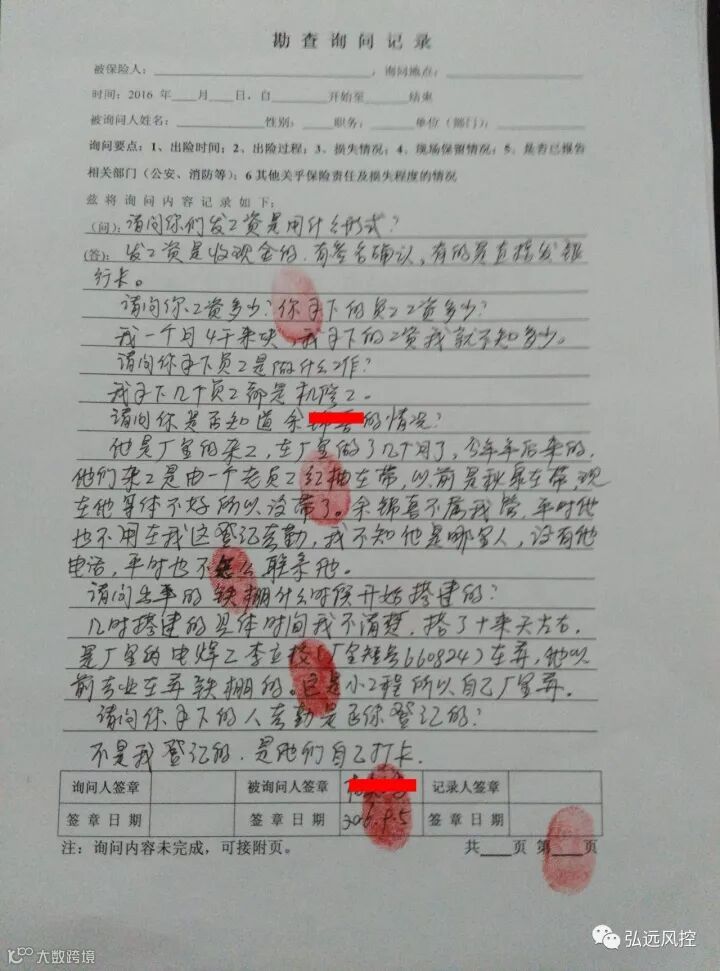 勘查询问记录
被保险人：，询问地点：
时间：2016 年 月 日，自 开始至 结束
被询问人姓名： 性别： 职务： 单位（部门）：
询问要点：1、出险时间；2、出险过程；3、损失情况；4、现场保留情况；5、是否已报告
相关部门（公安、消防等）；6 其他关乎保险责任及损失程度的情况
兹将询问内容记录如下：
（问）：请问你们发工资是用什么形式？
（答）：发工资是收现金的，有签名确认，有的员直接发银
行卡。
请问你工资多少？你手下的员工工资多少？
我一个月4千来块，我手下的工资我就不知多少。
请问你手下员工是做什么工作？
我手下几个员工都是机修工。
请问你是否知道余 的情况？
他是厂里的杂工，在厂里做了几个月了，今年年后来的，
他们杂工是由一个老员工 在带，以前是 在带，现
在他身体不好所以没带了。余 喜不属我管，平时他
也不用在我这登记考勤，我不知他是哪里人，没有他
电话，平时也不怎么联系他。
请问出事的铁棚什么时候开始搭建的？
几时搭建的具体时间我不清楚，搭了十来天左右，
是厂里的电焊工李立 （厂里短号660824）在弄，他以
前专业在弄铁棚的。这是小工程所以自己厂里弄。
请问你手下的人考勤是否你登记的？
不是我登记的，是他们自己打卡.
询问人签章 被询问人签章 记录人签章
签章日期 签章日期 2016.9.5 签章日期
注：询问内容未完成，可接附页。 共 页 第 页
弘远风控
大数跨境